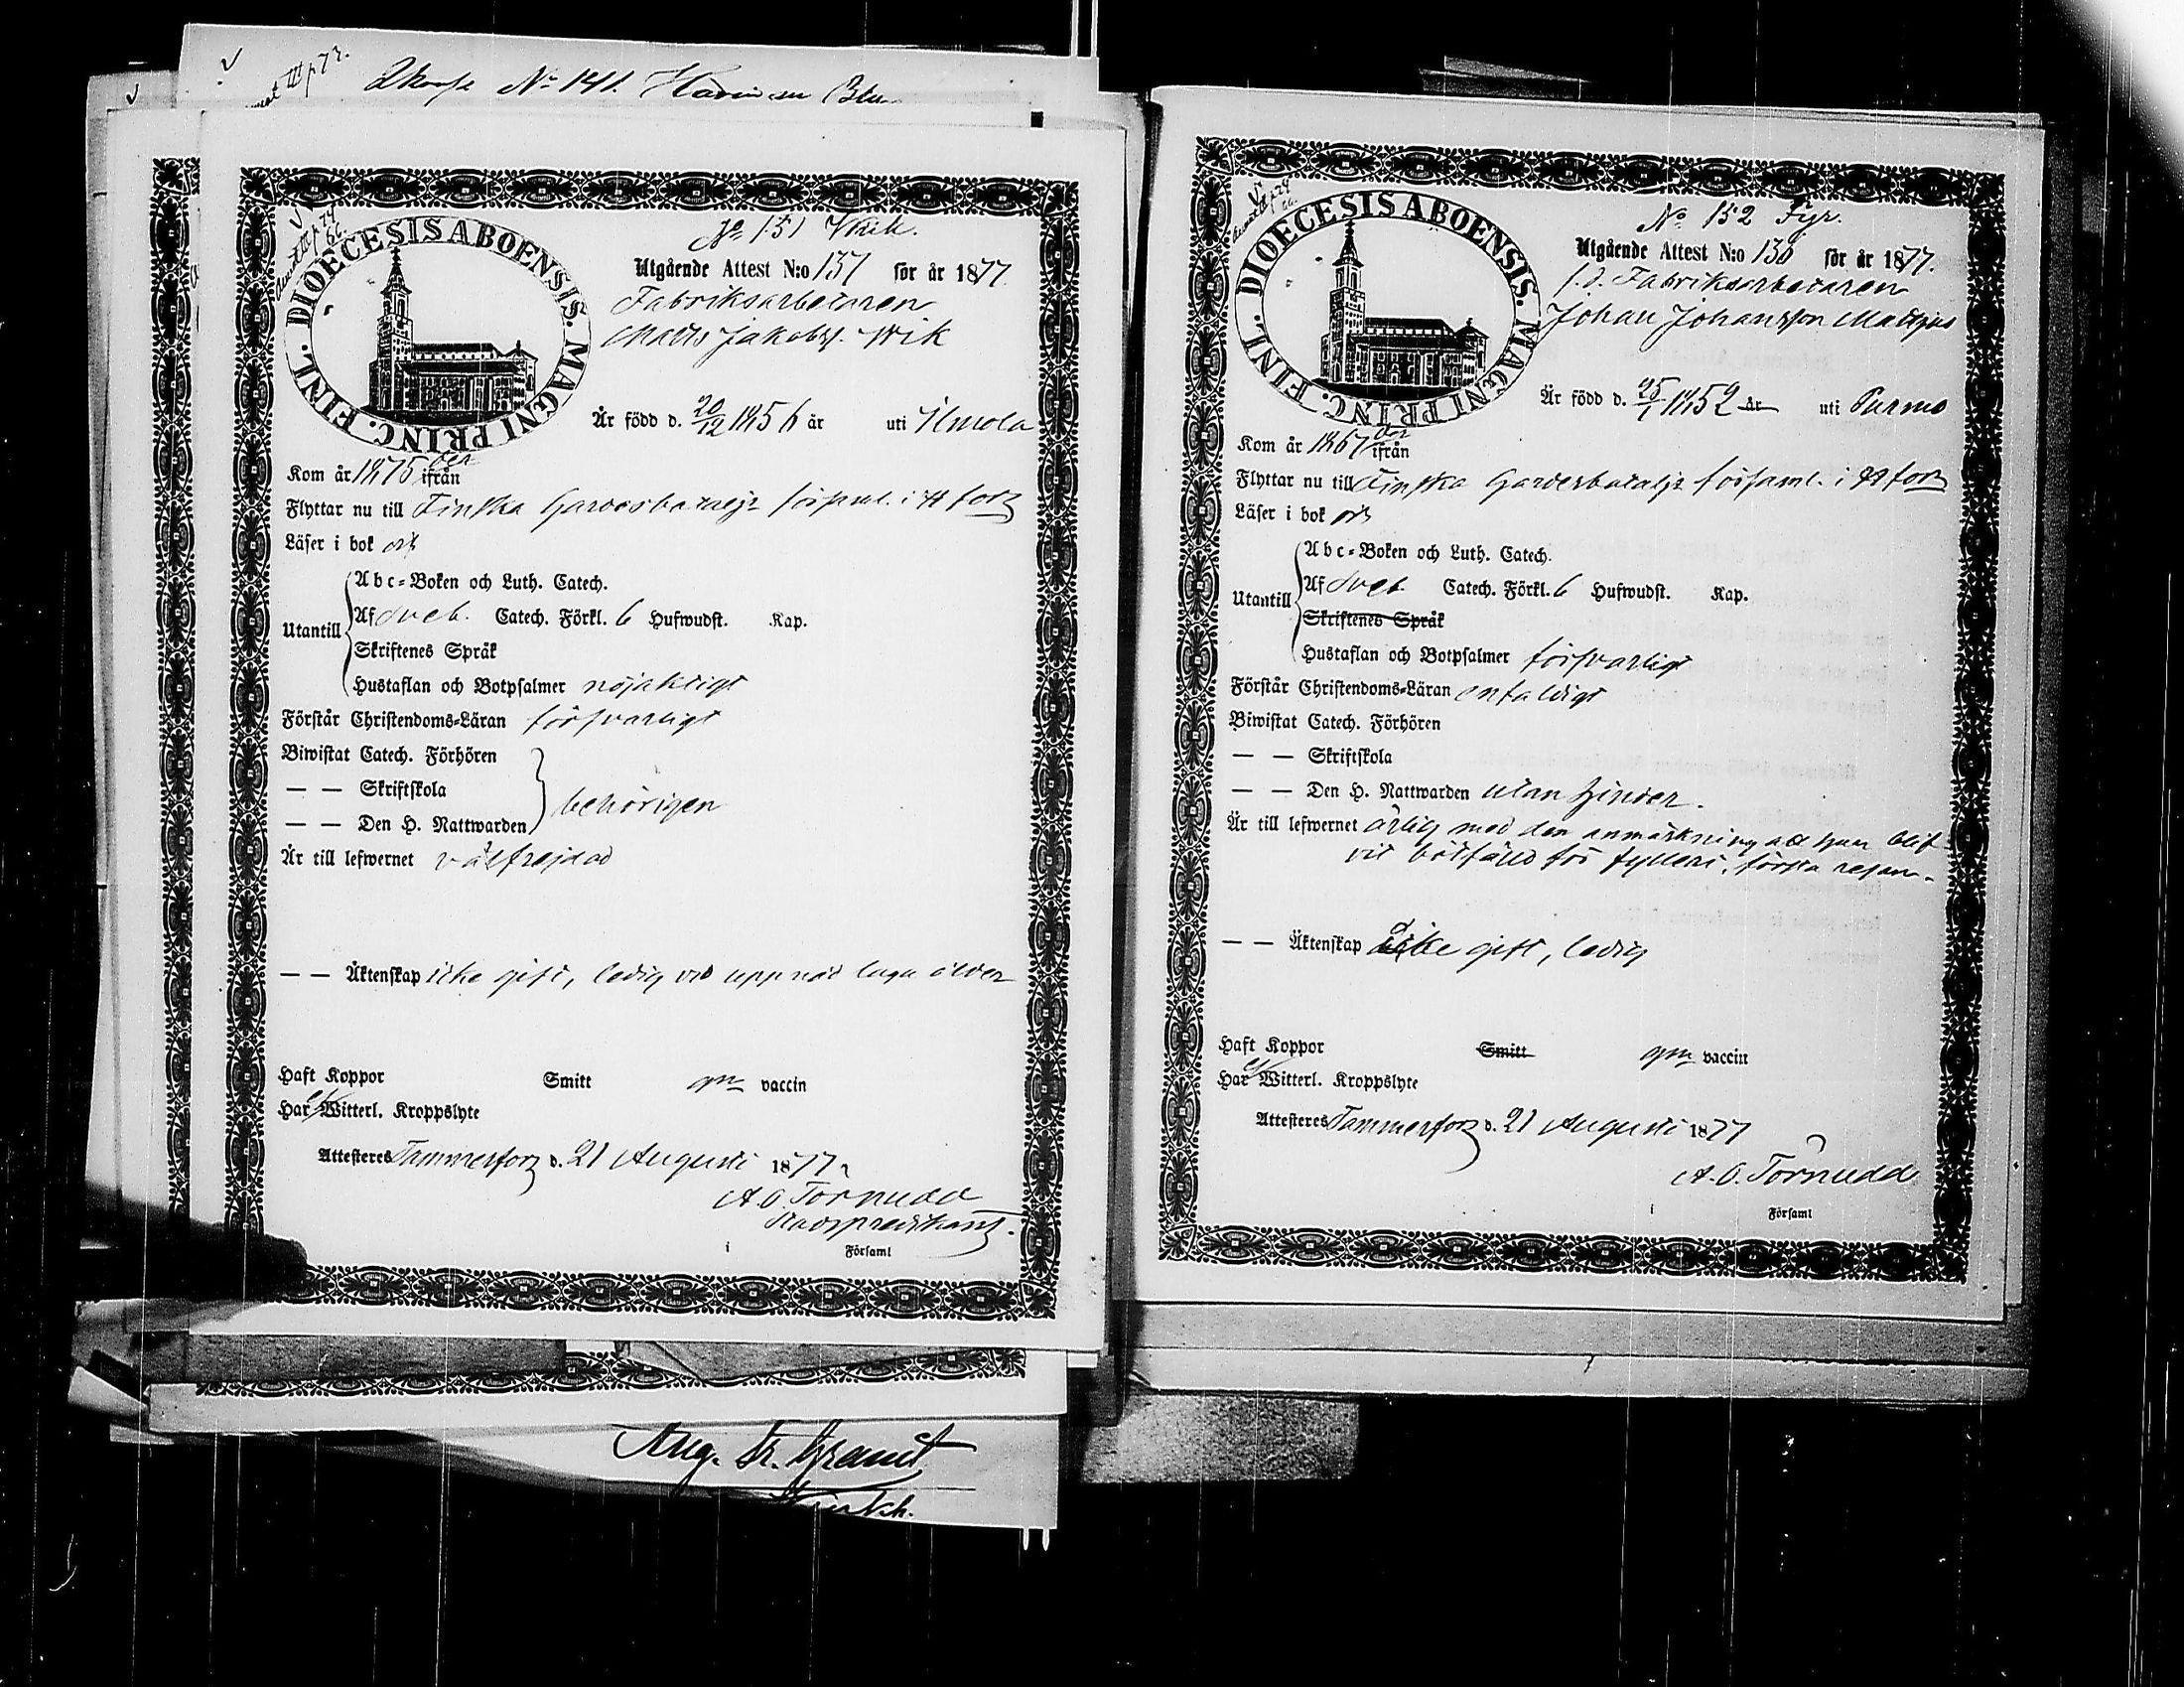 No 141.
DIOECESIS ABOENSIS. MAGNI PRINC. FINL.
No 151 Wik.
Utgående Attest N:o 137 för år 1877.
Fabriksarbetaren
Matts Jakobss. Wik
Är född d. 20/12 1856 år uti Ilmola
Kom år 1875 ifrån
Flyttar nu till Finska Gardesbataljs församl. i H:fors
Läser i bok
Utantill
Abc-Boken och Luth. Catech.
Af Sveb. Catech. Förkl. 6 Hufwudst. Kap.
Skriftenes Språk
Hustaflan och Botpsalmer nöjaktigt
Förstår Christendoms-Läran försvarligt
Biwistat Catech. Förhören
— — Skriftskola
behörigen
— — Den H. Nattwarden
Är till lefwernet välfrejdad
— — Äktenskap icke gift, ledig vid uppnåd laga ålder
Haft Koppor Smitt gm vaccin
Har ej Witterl. Kroppslyte
Attesteres Tammerfors d. 21 Augusti 1877
A. O. Törnudd
i Församl
Aug. Fr. Granit
DIOECESIS ABOENSIS. MAGNI PRINC. FINL.
No 152 Fyr.
Utgående Attest N:o 138 för år 1877.
f.d. Fabriksarbetaren
Johan Johansson Mattjus
Är född d. 25/1 1852 år uti Purmo
Kom år 1867 ifrån
Flyttar nu till Finska Gardesbataljs församl. i H:fors
Läser i bok
Utantill
Abc-Boken och Luth. Catech.
Af Sveb. Catech. Förkl. 6 Hufwudst. Kap.
Skriftenes Språk
Hustaflan och Botpsalmer försvarligt
Förstår Christendoms-Läran enfaldigt
Biwistat Catech. Förhören
— — Skriftskola
— — Den H. Nattwarden utan hinder.
Är till lefwernet ärlig med den anmärkning att han blif-
vit bötfälld för fylleri, första resan.
— — Äktenskap icke gift, ledig
Haft Koppor Smitt gm vaccin
Har ej Witterl. Kroppslyte
Attesteres Tammerfors d. 21 Augusti 1877
A. O. Törnudd
i Församl